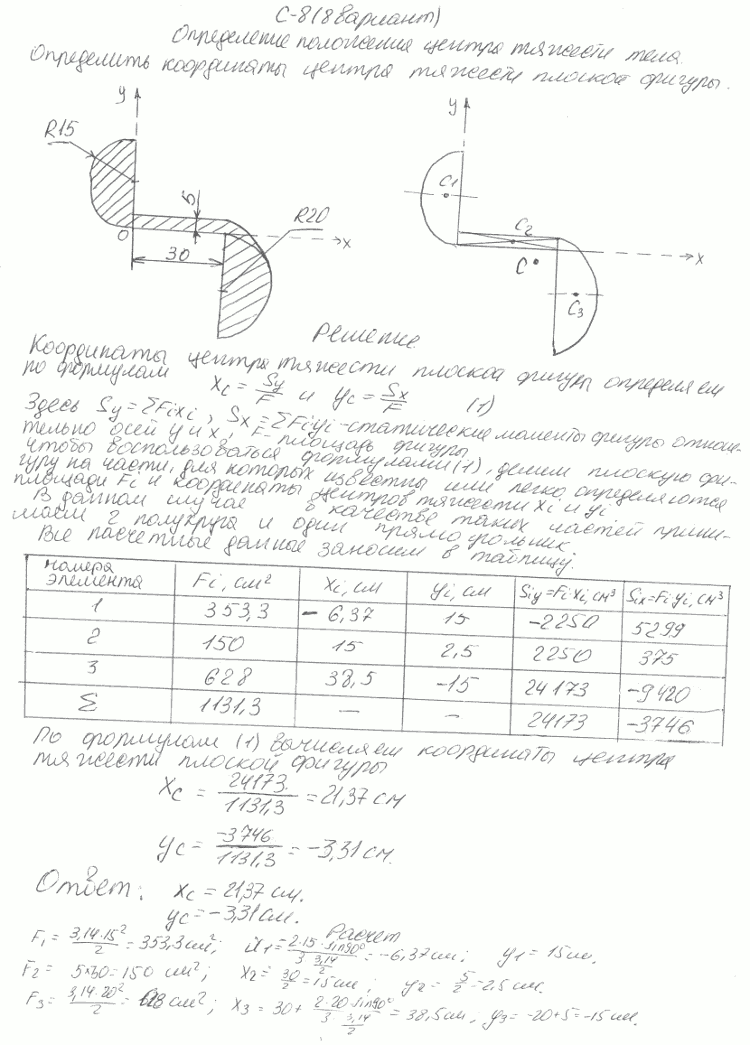 С-8 (8 вариант)
Определение положения центра тяжести тела.
Определить координаты центра тяжести плоской фигуры.
y
R15
5
R20
O
x
30
y
C1
C2
x
C
C3
Решение
Координаты центра тяжести плоской фигуры определяем
по формулам Xc = Sy/F и yc = Sx/F (1)
Здесь Sy = ΣFixi, Sx = ΣFiyi - статические моменты фигуры относи-
тельно осей y и x, F - площадь фигуры
чтобы воспользоваться формулами (1), делим плоскую фи-
гуру на части, для которых известны или легко определяются
площади Fi и координаты центров тяжести xi и yi
В данном случае в качестве таких частей прини-
маем 2 полукруга и один прямоугольник.
Все расчетные данные заносим в таблицу:
номера элемента Fi, см² Xi, см yi, см Siy=Fi·Xi, см³ Six=Fi·yi, см³
1 353,3 - 6,37 15 -2250 5299
2 150 15 2,5 2250 375
3 628 38,5 -15 24173 -9420
Σ 1131,3 — - 24173 -3746
По формулам (1) вычисляем координаты центра
тяжести плоской фигуры
Xc = 24173/1131,3 = 21,37 см
yc = -3746/1131,3 = -3,31 см.
Ответ: xc = 21,37 см.
yc = -3,31 см.
Расчет
F1 = 3,14·15²/2 = 353,3 см²; x1 = 2·15·sin90°/3 3,14/2 = -6,37 см; y1 = 15 см.
F2 = 5×30 = 150 см²; x2 = 30/2 = 15 см; y2 = 5/2 = 2,5 см.
F3 = 3,14·20²/2 = 628 см²; x3 = 30 + 2·20·sin90°/3 3,14/2 = 38,5 см, y3 = -20+5 = -15 см.